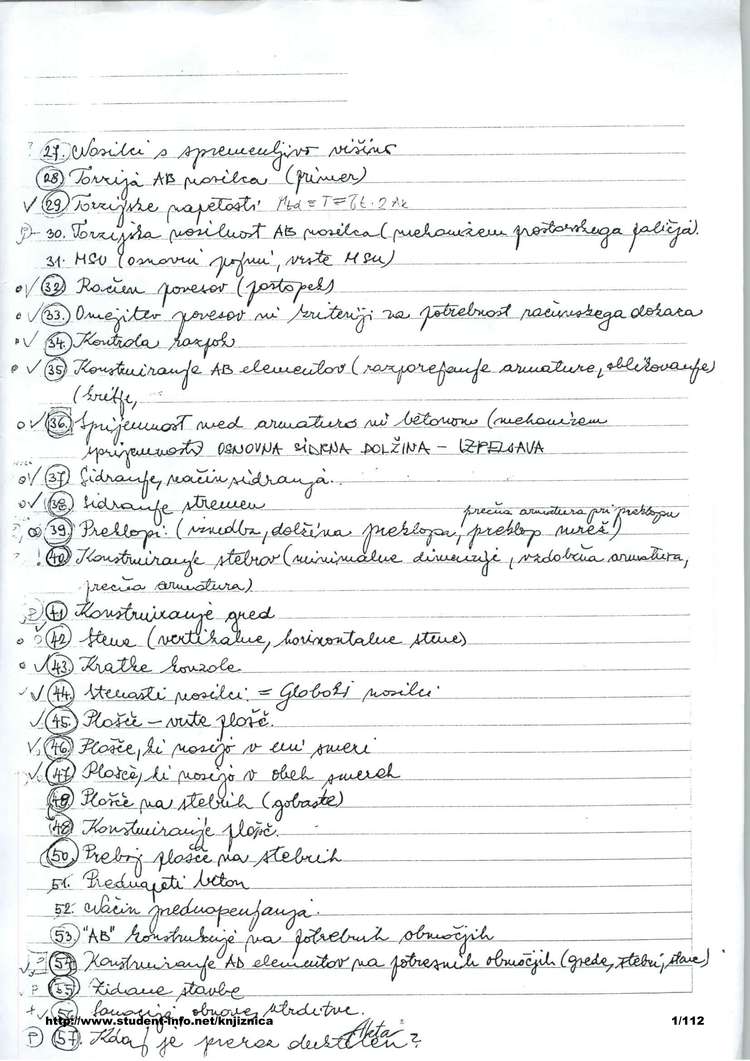 27. Nosilci s spremenljivo višino
28. Torzija AB nosilca (primer)
29. Torzijske napetosti
P 30. Torzijska nosilnost AB nosilca (mehanizem prostorskega paličja).
31. MSU (osnovni pojmi, vrste MSU)
32. Račun povesov (postopek)
33. Omejitev povesov in kriteriji za potrebnost računskega dokaza
34. Kontrola razpok
35. Konstruiranje AB elementov (razporejanje armature, oblikovanje)
(kritje,
36. Sprijemnost med armaturo in betonom (mehanizem
sprijemnosti) OSNOVNA SIDRNA DOLŽINA – IZPELJAVA
37. Sidranje, način sidranja.
38. Sidranje stremen
prečna armatura pri preklopu
39. Preklopi: (izvedba, dolžina preklopa, preklop mrež)
40. Konstruiranje stebrov (minimalne dimenzije, vzdolžna armatura,
prečna armatura)
41. Konstruiranje gred
42. Stena (vertikalne, horizontalne stene)
43. Kratke konzole
44. Stenasti nosilci = Globoki nosilci
45. Plošče – vrste plošč.
46. Plošče, ki nosijo v eni smeri
47. Plošče, ki nosijo v obeh smereh
49. Plošče na stebrih (gobaste)
48. Konstruiranje plošč.
50. Preboj plošče na stebrih
51. Prednapeti beton
52. Način prednapenjanja.
53. "AB" konstrukcije na potresnih območjih
54. Konstruiranje AB elementov na potresnih območjih (grede, stebri, stene)
P 55. Zidane stavbe
56. Sanacija, obnova, utrditve.
http://www.student-info.net/knjiznica 1/112
P 57. Kdaj je prerez duktilen?